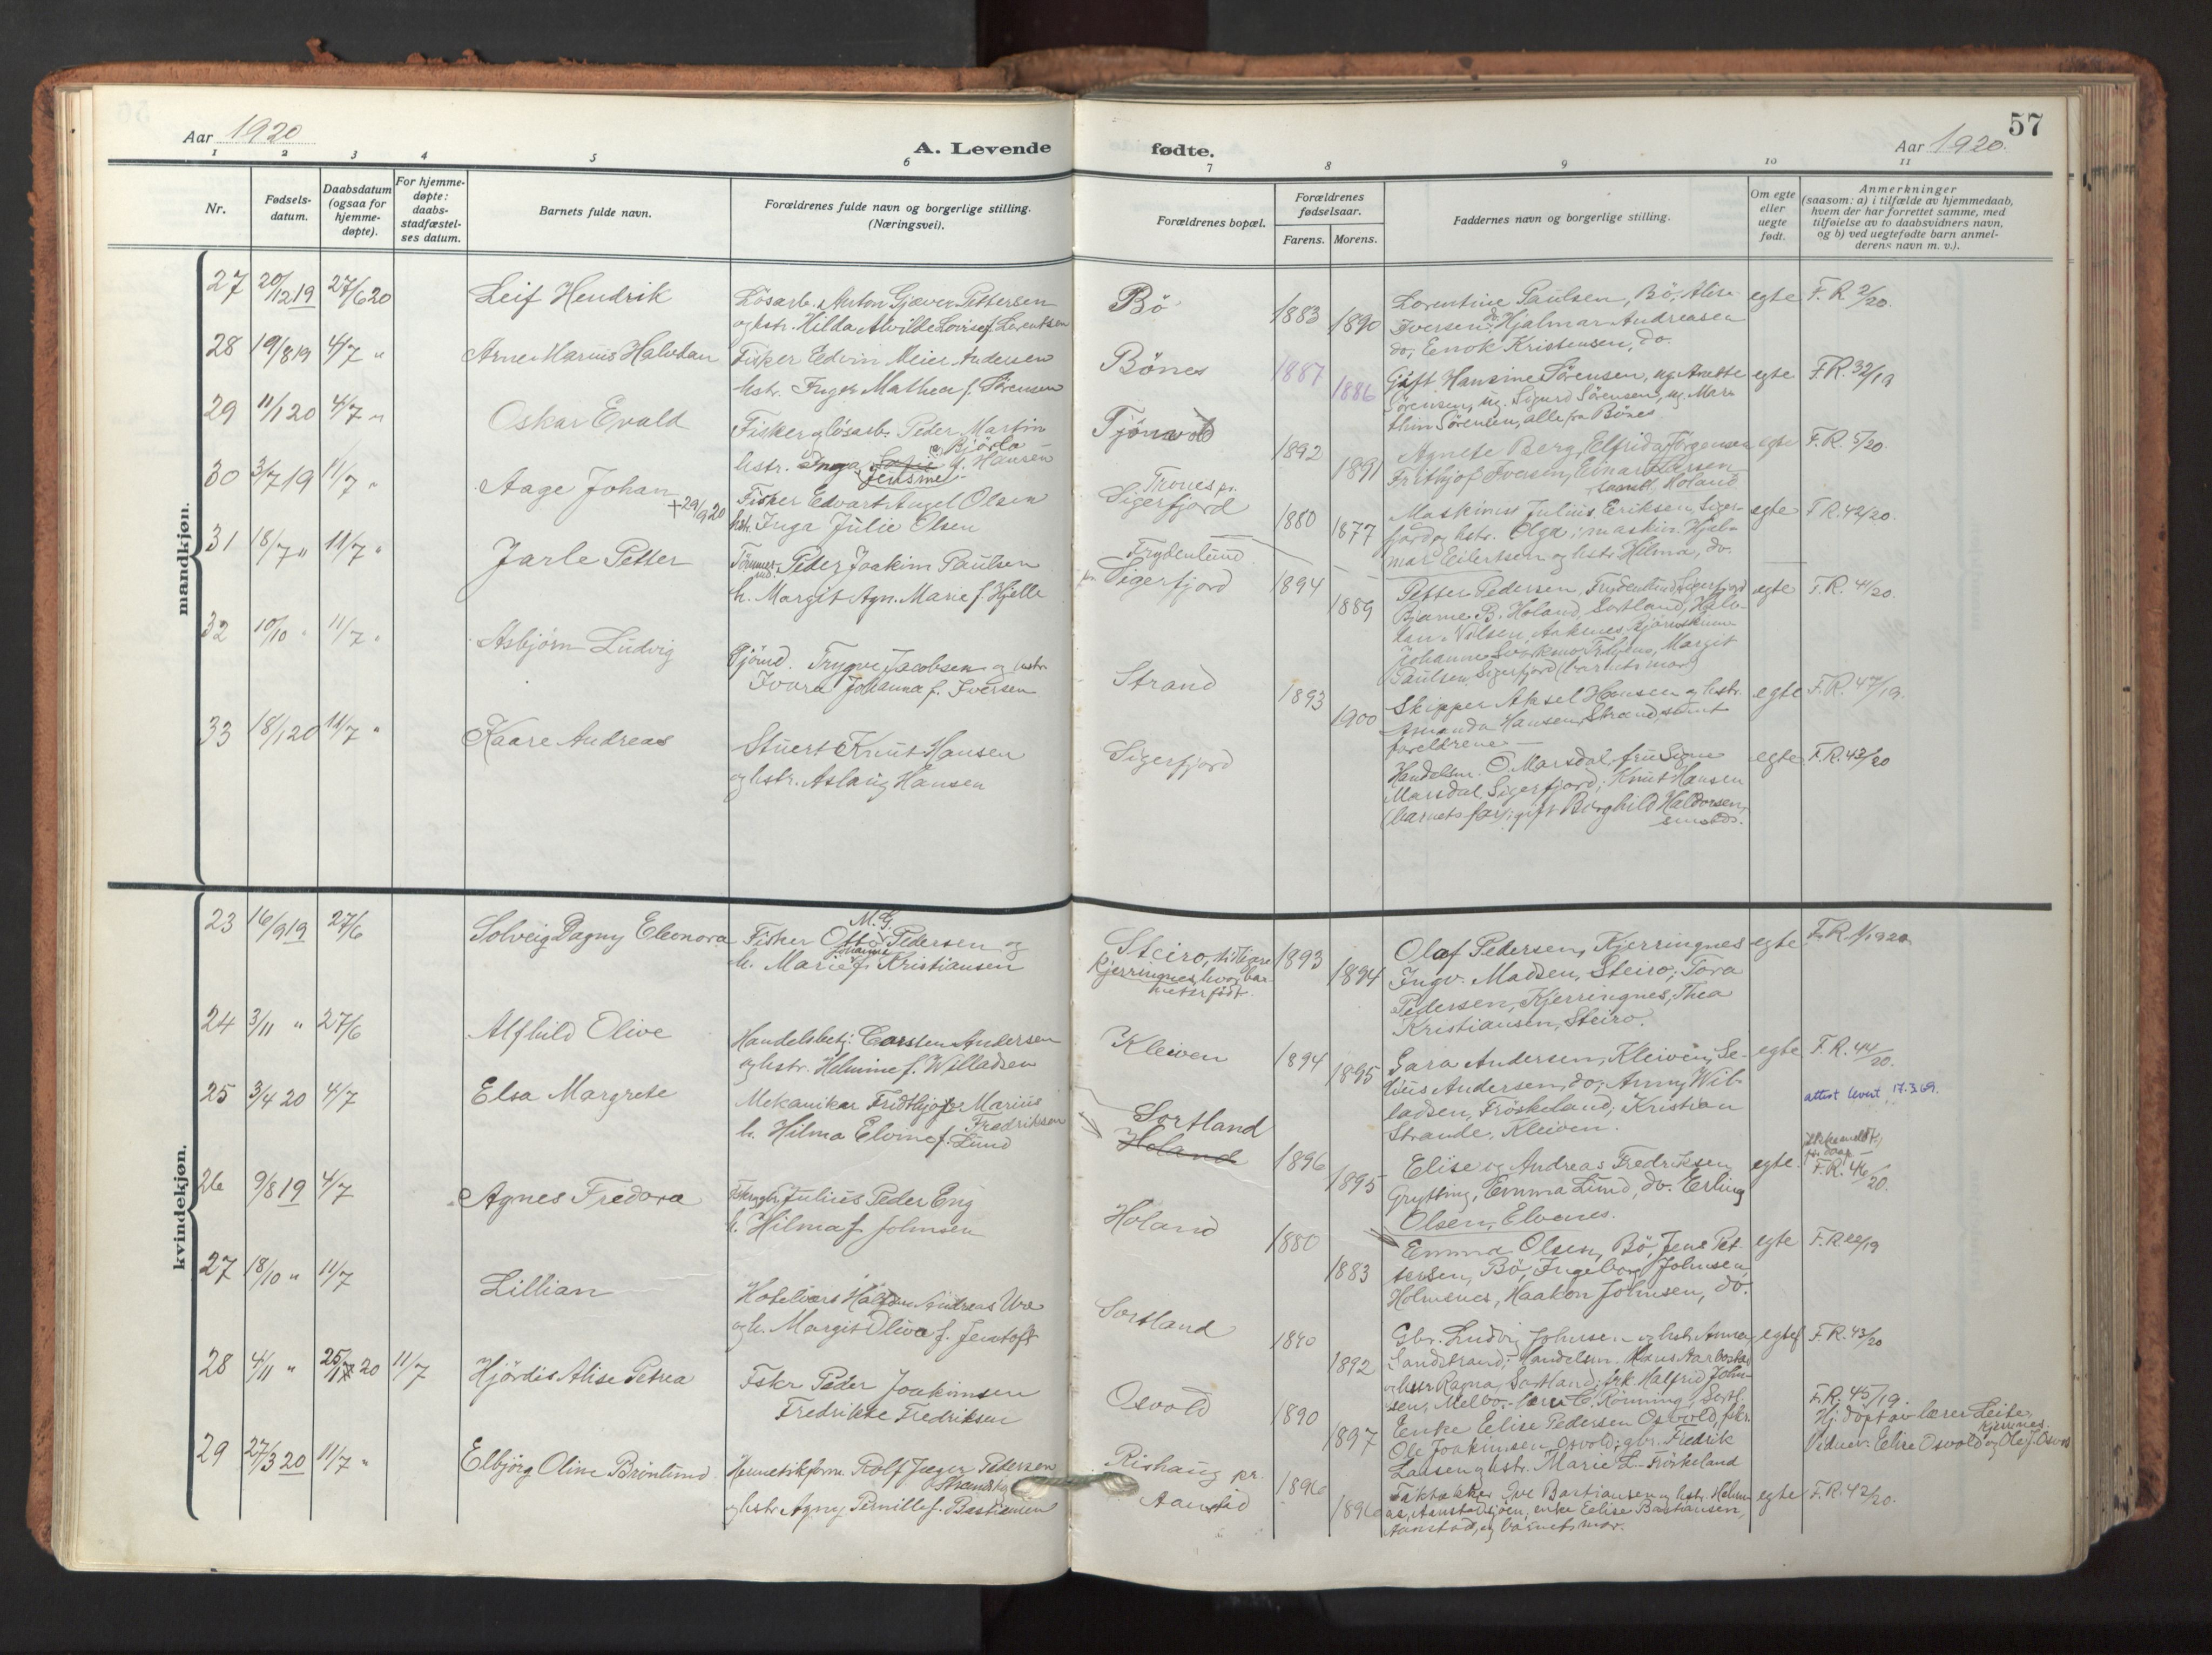 57
Aar 1920
A. Levende
fødte.
Aar 1920.
1 2 3 4 5 6 7 8 9 10 11
Nr.
Fødsels-
datum.
Daabsdatum
(ogsaa for
hjemme-
døpte).
For hjemme-
døpte:
daabs-
stadfæstel-
ses datum.
Barnets fulde navn.
Forældrenes fulde navn og borgerlige stilling.
(Næringsvei).
Forældrenes bopæl.
Forældrenes
fødselsaar.
Farens. Morens.
Faddernes navn og borgerlige stilling.
Om egte
eller
uegte
født.
Anmerkninger
(saasom: a) i tilfælde av hjemmedaab,
hvem der har forrettet samme, med
tilføielse av to daabsvidners navn,
og b) ved uegtefødte barn anmel-
derens navn m. v.).
mandkjøn.
27 20/12 19 27/6 20 Leif Hendrik
Løsarb. Anton Gjæver Pettersen
og hstr. Hilda Alvilde Lovise f. Lorentsen
Bö 1883 1890
Lorentine Paulsen, Bö, Alise
Iversen do, Hjalmar Andreasen
do, Enok Kristensen, do.
egte F. R. 2/20.
28 19/8 19 4/7 " Arne Marius Halvdan
Fisker Edvin Meier Andersen
hstr. Inger Mathea f. Sörensen
Bönes 1887 1886
Gift Hansine Sörensen, ug. Anette
Sörensen, ug. Sigurd Sörensen, ug. Mar-
thin Sörensen, alle fra Bönes
egte F.R. 32/19
29 11/1 20 4/7 " Oskar Evald
Fisker og løsarb. Peder Martin
Bjørla
hstr. Inga Sofie f. Hansen
Jensine
1892 1891
Agnete Berg, Elfrida Jörgensen
Frithjof Iversen, Einar Larsen
samtl. Holand
egte F. R. 5/20.
30 3/7 19 11/7 " Aage Johan
+ 29/9 20
Fisker Edvart Angel Olsen
hstr. Inga Julie Olsen
Trones pr.
Sigerfjord 1880 1877
Maskinist Julius Eriksen, Siger-
fjord og hstr. Olga; maskin. Hjal-
mar Eilertsen og hstr Hilma, do.
egte F R. 42/20.
31 18/7 " 11/7 " Jarle Petter
Tömmer-
md. Peder Joakim Paulsen
h. Margit Agn. Marie f. Hjelle
Frydenlund
pr. Sigerfjord 1894 1889
Petter Pedersen, Frydenlund, Sigerfjord
Bjarne B. Holand, Sortland, Halv-
dan Nilsen,
Johanne Margit
Paulsen, Sigerfjord (barnets mor)
egte F. R. 41/20.
32 10/10 " 11/7 " Asbjörn Ludvig
Sjömd. Trygve Jacobsen og hstr.
Ivara Johanna f. Iversen
Strand 1893 1900
Skipper Aksel Hansen og hstr.
Amanda Hansen, Strand, samt
foreldrene —
egte F. R. 47/19.
33 18/1 20 11/7 " Kaare Andreas
Stuert Knut Hansen
og hstr. Aslaug Hansen
Sigerfjord
Handelsm. O. Marsdal, fru Signe
Marsdal, Sigerfjord; Knut Hansen
(barnets far); gift Borghild Haldorsen,
smstds.
egte F. R. 43/20
kvindekjøn.
23 16/9 19 27/6 Solveig Dagny Eleonora
M. G.
Fisker Otto Pedersen og
Johanne
h. Marie f. Kristiansen
Steiro, tidligere
Kjerringnes hvor bar-
net er født. 1893 1894
Olaf Pedersen, Kjerringnes
Ingv. Madsen, Steiro; Tora
Pedersen, Kjerringnes, Thea
Kristiansen, Steiro.
egte F. R. 1/1920.
24 3/11 " 27/6 Alfhild Olive
Handelsbetj. Carsten Andersen
og hstr. Helmine f. Willadsen
Kleiven 1894 1895
Sara Andersen, Kleiven, Se-
lius Andersen, do, Anny Wil-
ladsen, Fröskeland; Kristian
Strande, Kleiven.
egte F. R. 44/20.
attest levert 17.3.69.
25 3/4 20 4/7 Elsa Margrete
Mekaniker Fridthjof Marius
Fredriksen
h. Hilma Elvine f. Lund
Sortland
Holand 1896 1895
Elise og Andreas Fredriksen
Grytting, Emma Lund, do. Erling
Olsen, Elvenes.
egte
F. R. 46/20.
26 9/8 19 4/7 Agnes Fredora
Fskr. Julius Peder Eng
h. Hilma f. Johnsen
Holand 1880 1883
Emma Olsen, Bö, Jens Pet-
tersen, Bö, Ingeborg Johnsen,
Holmenes, Haakon Johnsen, do.
egte
27 18/10 " 11/7 Lillian
Hotelvært Andreas Ure
og h. Margit Oliva f. Jentoft
Sortland 1892
Gbr. Ludvig Johnsen og hstr. Anna
Sandstrand; Handelsm. Hans
og hstr Ragna, Sortland; frk. Halfrid John-
sen, Melbo. C. Rönning, Sortl.
egte F. R. 43/20
28 4/11 " 25/ 20 11/7 Hjördis Alise Petrea
Fskr Peder Joakimsen
Fredrikke Fredriksen
Osvold 1890 1897
Enke Elise Pedersen Osvold, fskr.
Ole Joakimsen Osvold; gbr. Fredrik
Larsen og hstr. Marie L. Fröskeland
F. R. 45/19.
Hj. döpt av lærer Leite,
Kjerrnes.
Vidner: Elise Osvold og Ole J. Osvold
29 27/3 20 11/7 " Elbjörg Oline Brönlund
Hermetikform. Rolf Jæger Pedersen
og hstr Agny Pernille f. Bastiansen
Rishaug pr.
Aanstad 1896 1896
Bastiansen og hstr.
enke Elise Bastiansen,
Aanstad, og barnets mor.
egte F. R. 42/20.